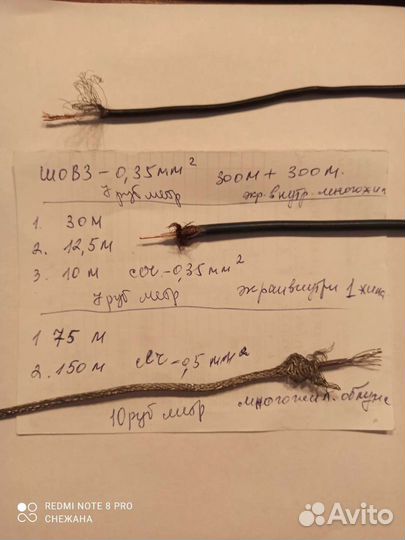 ШОВЗ - 0,35 мм² 300м + 300м.
7 руб метр экр. внутр. многожил
1. 30м
2. 12,5м
3. 10 м сеч - 0,35 мм²
7 руб метр экран внутри 1 жила
1 75 м
2. 150 м сеч - 0,5 мм²
10 руб метр многожил. облуж
REDMI NOTE 8 PRO
СНЕЖАНА
Avito